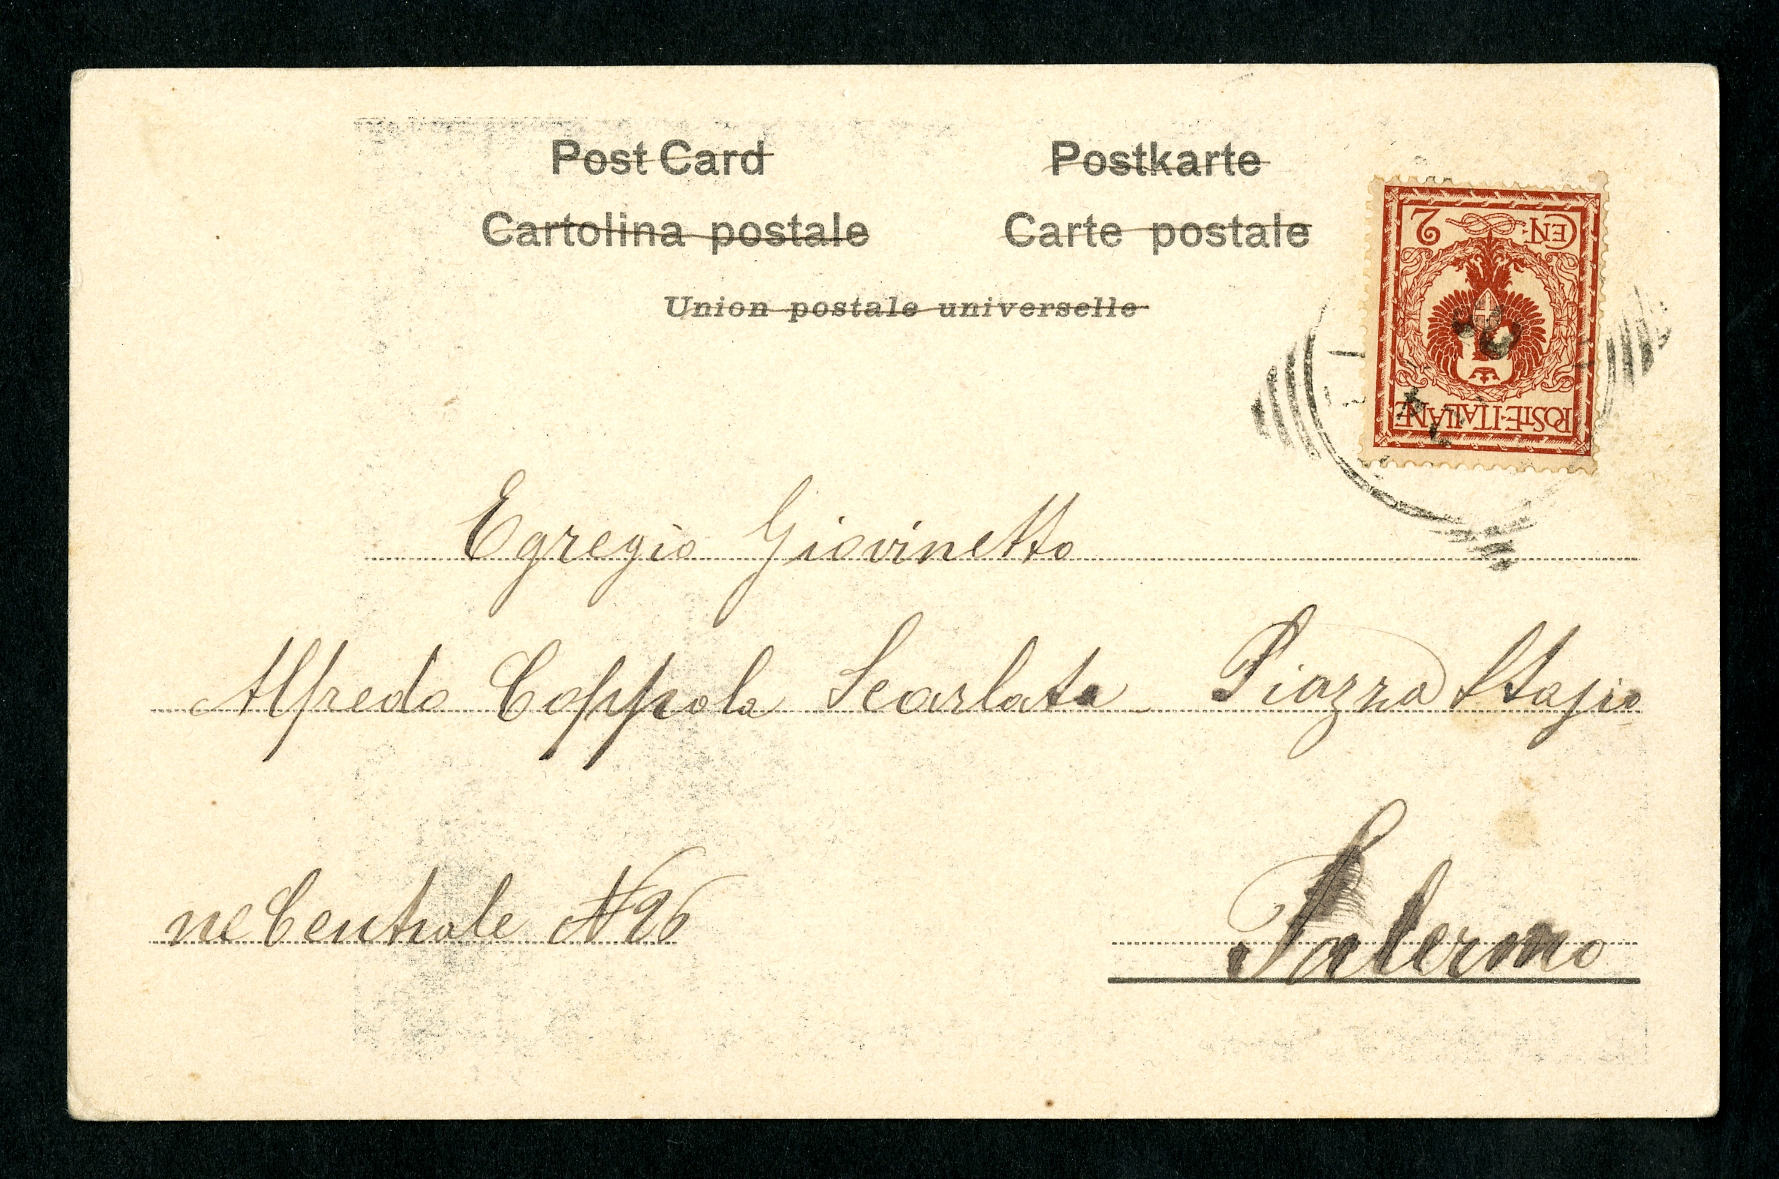 Post Card Postkarte
Cartolina postale Carte postale
Union postale universelle
CEN: 2
POSTE·ITALIANE
Egregio Giovinetto
Alfredo Coppola Scarlata - Piazza Stazio
ne Centrale N 26
Palermo